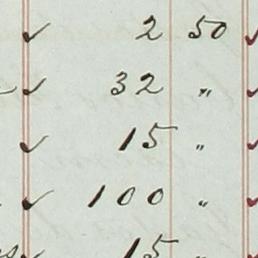 ✓ 2 50 ✓
✓ 32 " ✓
✓ 15 " ✓
✓ 100 " ✓
✓ 15 "